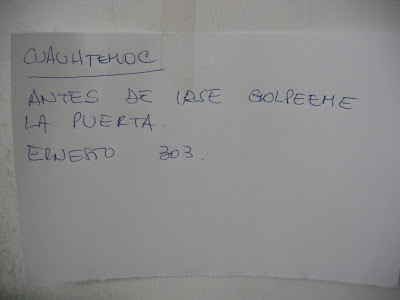 CUAUHTEMOC
ANTES DE IRSE GOLPEEME
LA PUERTA.
ERNESTO 303.